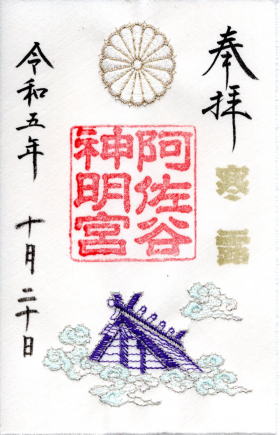 奉拝
阿佐谷
神明宮
令和五年 十月二十日